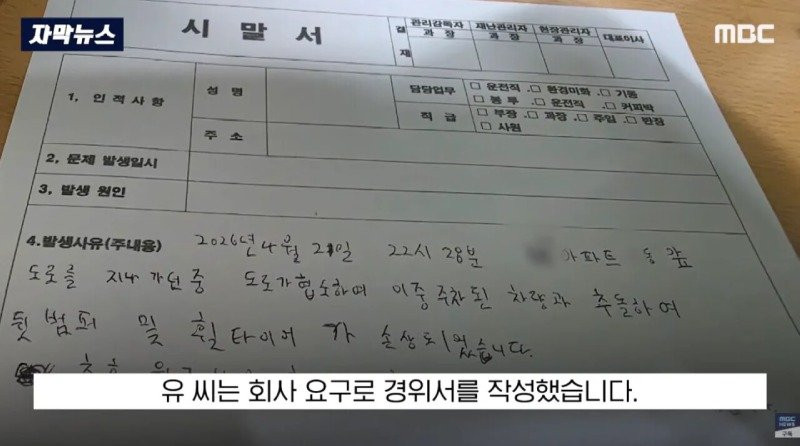 자막뉴스
MBC
시 말 서
결재
관리감독자 과 장
재난관리자 과 장
현장관리자 과 장
대표이사
1, 인 적 사 항
성 명
담당업무
□ 운전직 .□ 환경미화 .□ 기동
□ 봉 투 .□ 운전직 .□ 커피박
직 급
□ 부장 .□ 과장 .□ 주임 .□ 반장
□ 사원
주 소
2, 문제 발생일시
3, 발생 원인
4.발생사유(주내용) 2026년 4월 21일 22시 28분 아파트 동
도로를 지나 가던 중 도로가 협소하여 이중주차된 차량과 추돌하여
뒷범퍼 및 휠타이어 가 손상되었습니다.
유 씨는 회사 요구로 경위서를 작성했습니다.
MBC
NEWS
구독